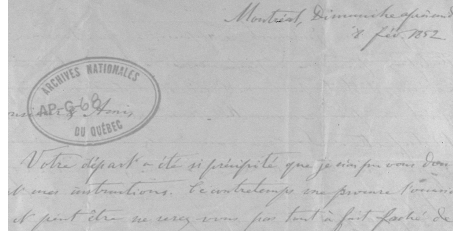 Montréal, Dimanche après mid
8 fév. 1852
ARCHIVES NATIONALES
AP-G 68
DU QUÉBEC
Amis,
Votre départ a été si précipité que je n'ai pu vous don
t mes instructions. Ce contretemps me procure l'
et peut être ne serez vous pas tout à fait faché de